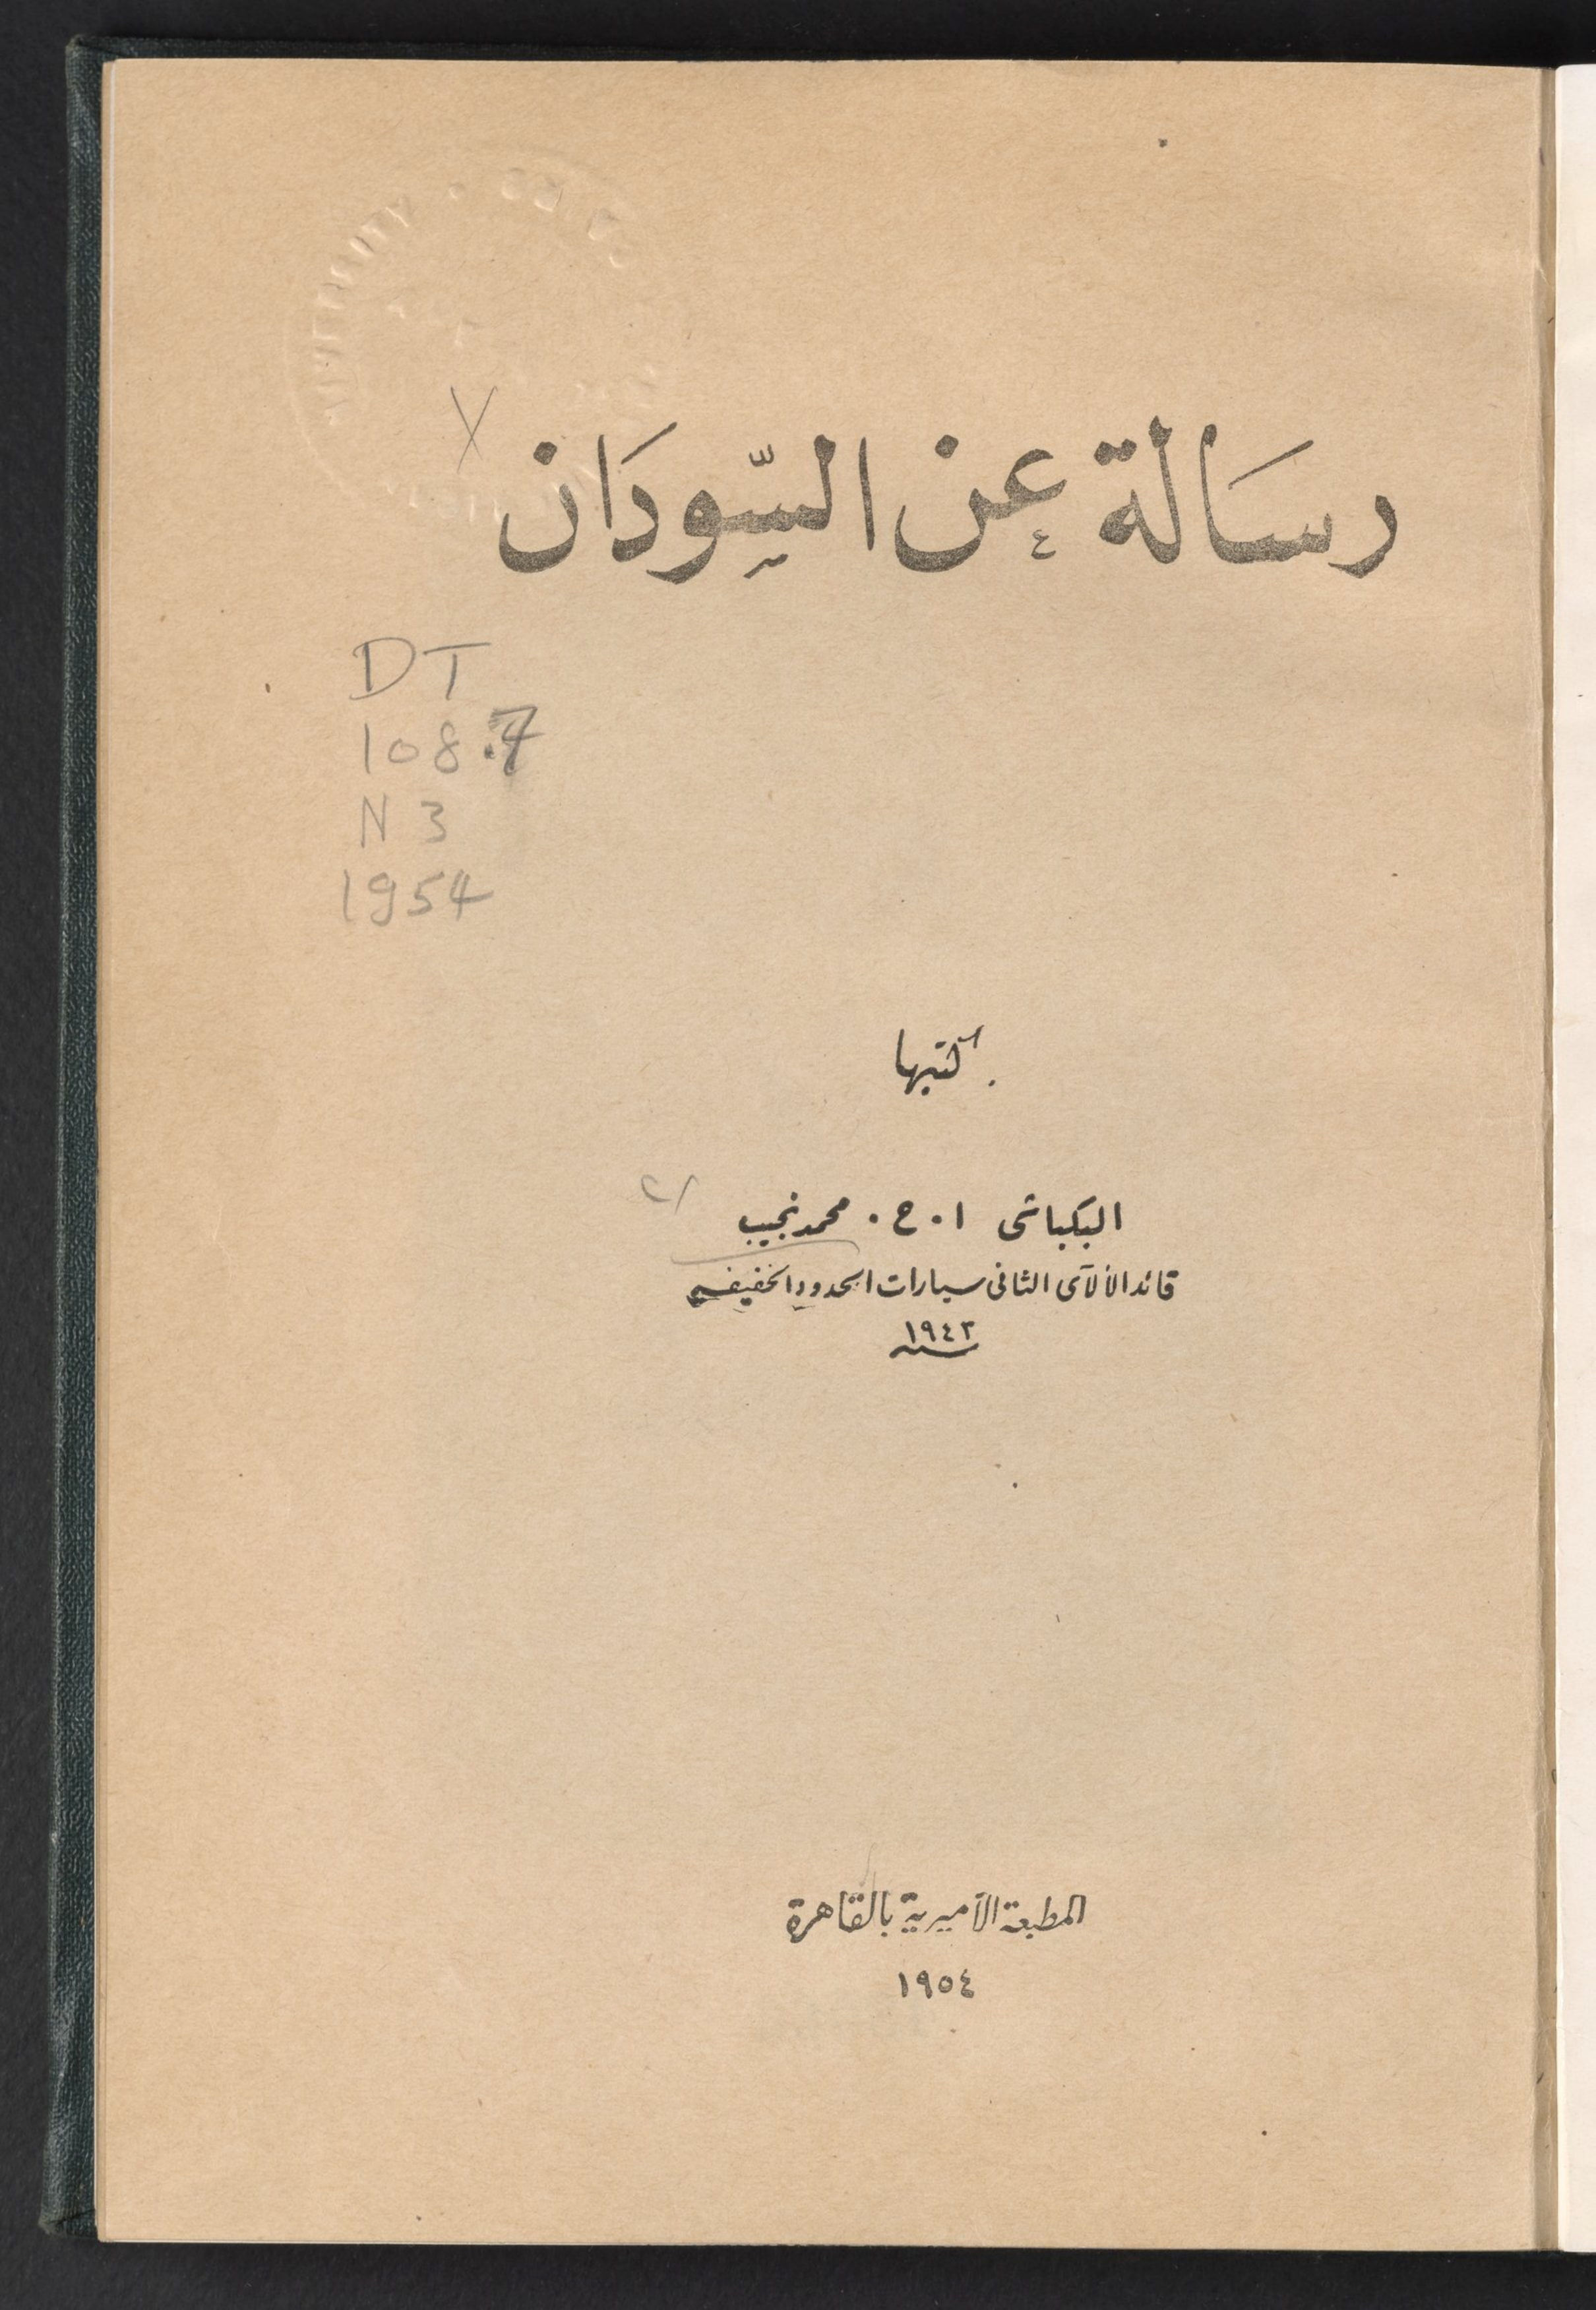 رسَالة عن السّودَان
DT
108.7
N 3
1954
كتبها
البكباشى ا . ح . محمد نجيب
قائد الألاى الثانى سيارات الحدود الخفيفة
سنة ١٩٤٣
المطبعة الأميرية بالقاهرة
١٩٥٤